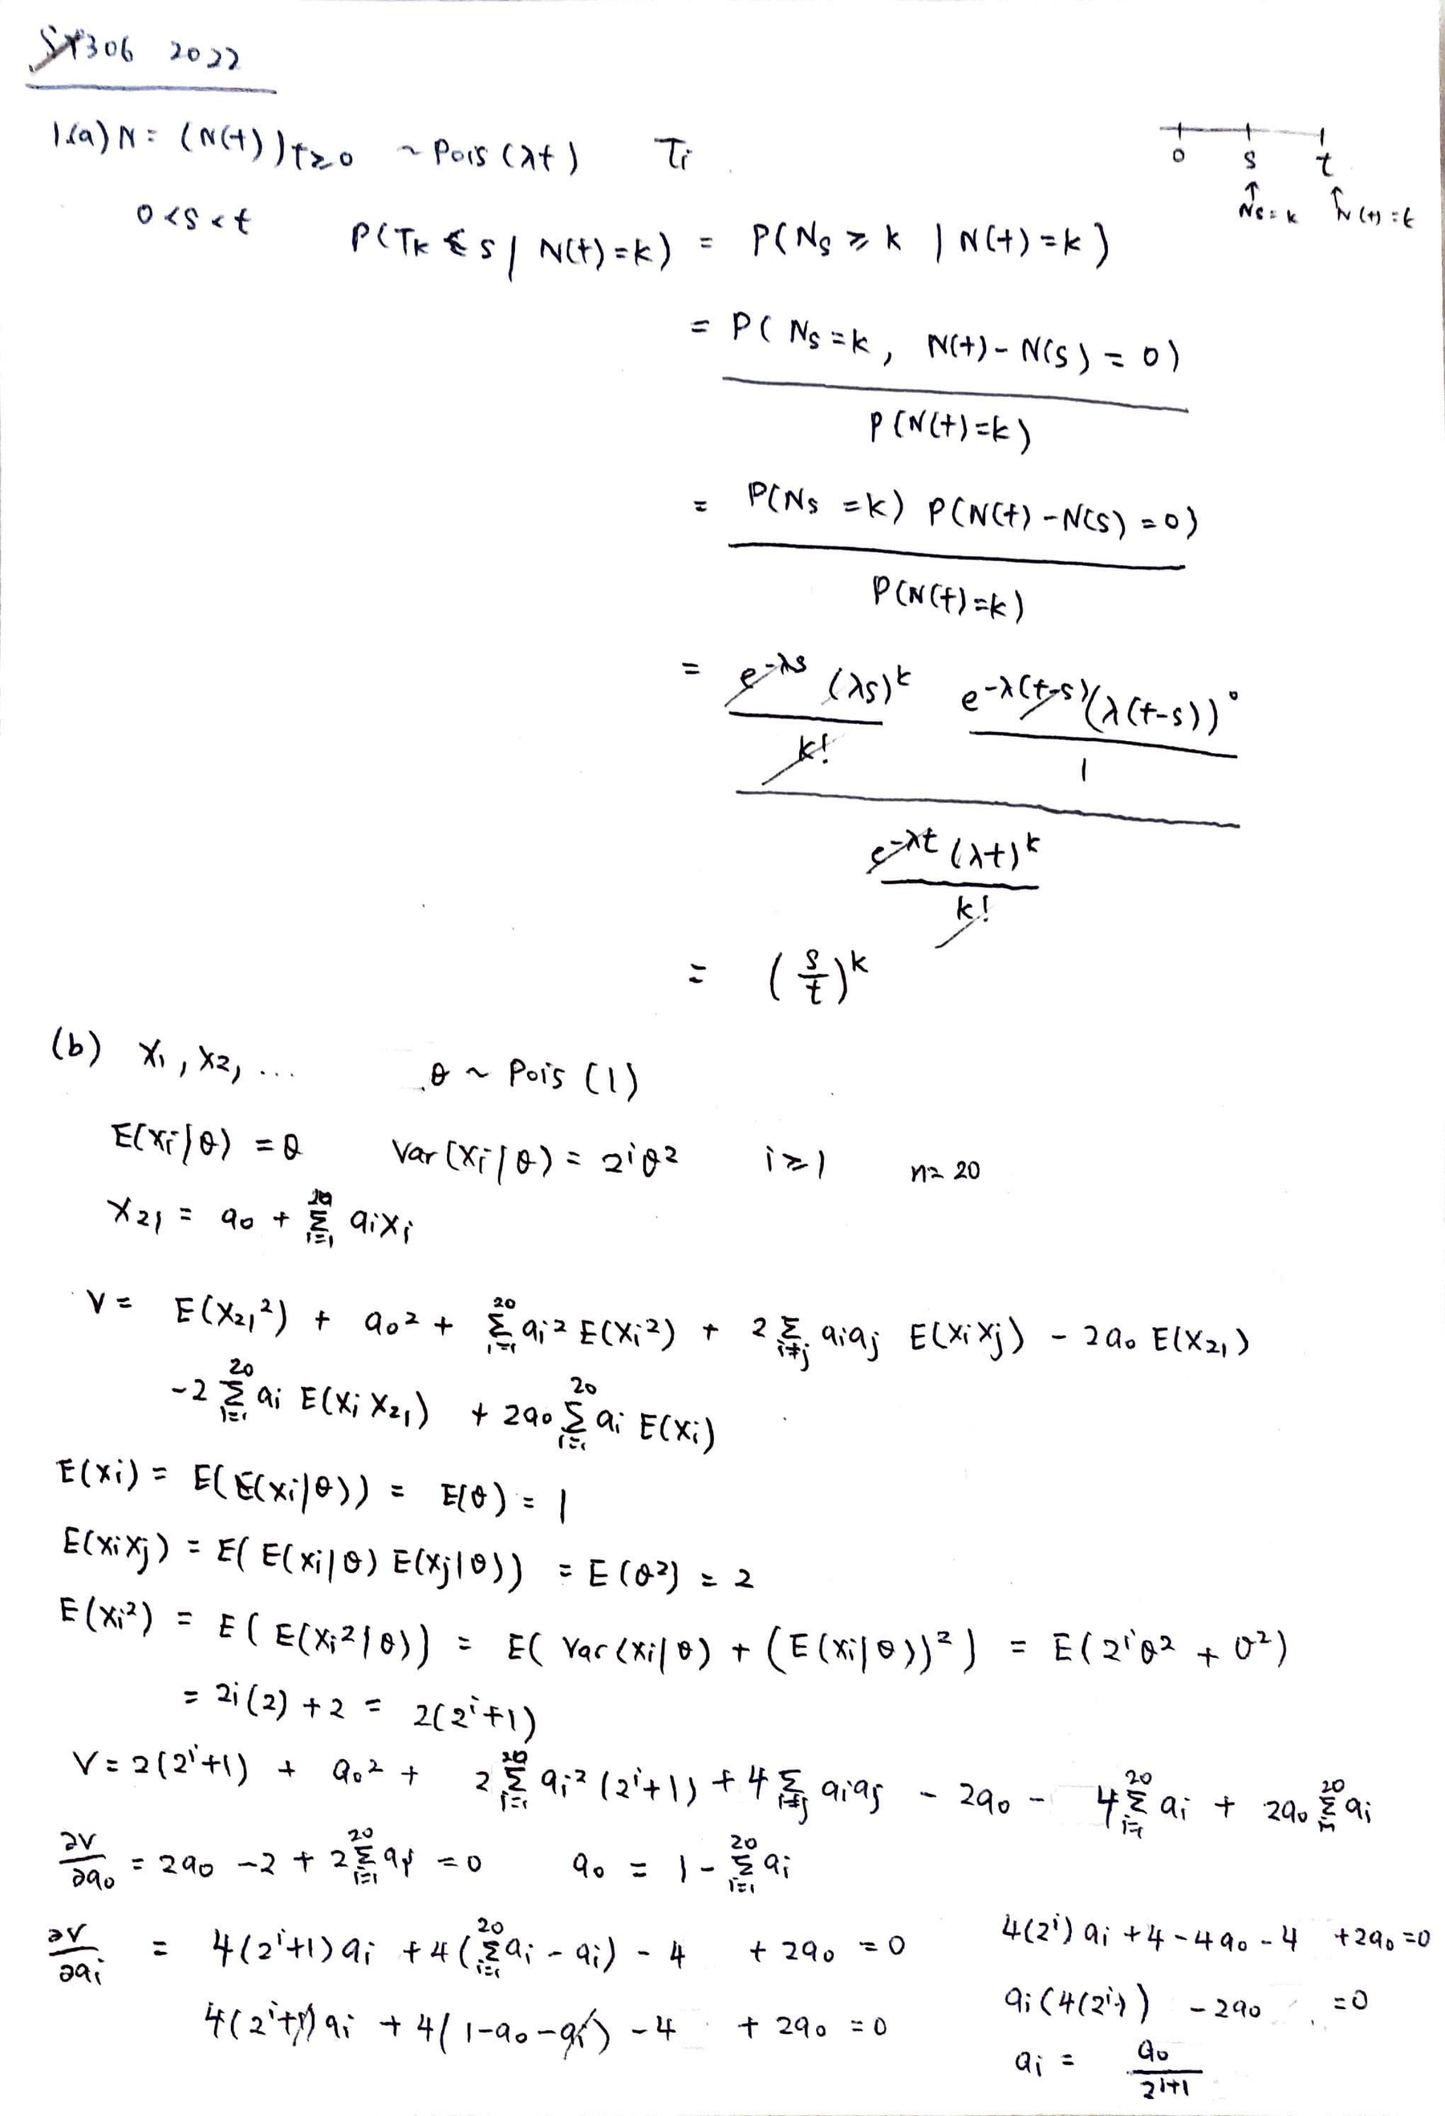 ST306 2022
1.(a) N = (N(t))t≥0 ~ Pois(λt) Ti
0 s t
Ns=k N(t)=k
0<s<t P(Tk ≤ s | N(t)=k) = P(Ns ≥ k | N(t)=k)
= P(Ns=k, N(t)-N(s)=0)
P(N(t)=k)
= P(Ns=k) P(N(t)-N(s)=0)
P(N(t)=k)
= e^-λs (λs)^k e^-λ(t-s) (λ(t-s))^0
k! 1
e^-λt (λt)^k
k!
= (s/t)^k
(b) X1, X2, ... θ ~ Pois(1)
E(Xi|θ) = θ Var(Xi|θ) = 2^i θ^2 i≥1 n=20
X21 = a0 + Σ_{i=1}^{20} ai Xi
V = E(X21^2) + a0^2 + Σ_{i=1}^{20} ai^2 E(Xi^2) + 2 Σ_{i≠j} ai aj E(Xi Xj) - 2a0 E(X21)
-2 Σ_{i=1}^{20} ai E(Xi X21) + 2a0 Σ_{i=1}^{20} ai E(Xi)
E(Xi) = E(E(Xi|θ)) = E(θ) = 1
E(XiXj) = E(E(Xi|θ) E(Xj|θ)) = E(θ^2) = 2
E(Xi^2) = E(E(Xi^2|θ)) = E(Var(Xi|θ) + (E(Xi|θ))^2) = E(2^i θ^2 + θ^2)
= 2i(2) + 2 = 2(2^i+1)
V = 2(2^i+1) + a0^2 + 2 Σ_{i=1}^{20} ai^2 (2^i+1) + 4 Σ_{i≠j} ai aj - 2a0 - 4 Σ_{i=1}^{20} ai + 2a0 Σ^{20} ai
∂V/∂a0 = 2a0 - 2 + 2 Σ_{i=1}^{20} ai = 0 a0 = 1 - Σ_{i=1}^{20} ai
∂V/∂ai = 4(2^i+1) ai + 4(Σ_{i=1}^{20} ai - ai) - 4 + 2a0 = 0
4(2^i+1) ai + 4(1-a0-ai) - 4 + 2a0 = 0
4(2^i) ai + 4 - 4a0 - 4 + 2a0 = 0
ai(4(2^i)) - 2a0 = 0
ai = a0/2^i+1